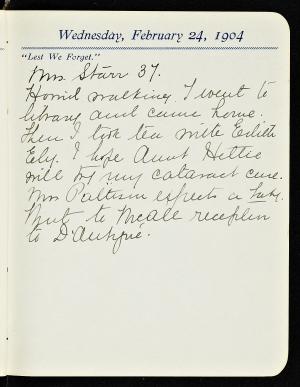 Wednesday, February 24, 1904
"Lest We Forget."
Mrs. Starr 37.
Horrid walking. I went to
library and came home.
Then I took tea with Edith
Ely. I hope Aunt Hettie
will try my cataract cure.
Mrs Pattison expects a
Went to reception
to D'